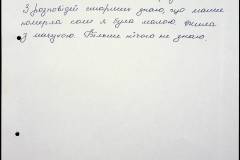 З розповідей старших знаю, що мама
померла коли я була малою. Жила
з мачухою. Більше нічого не знаю.